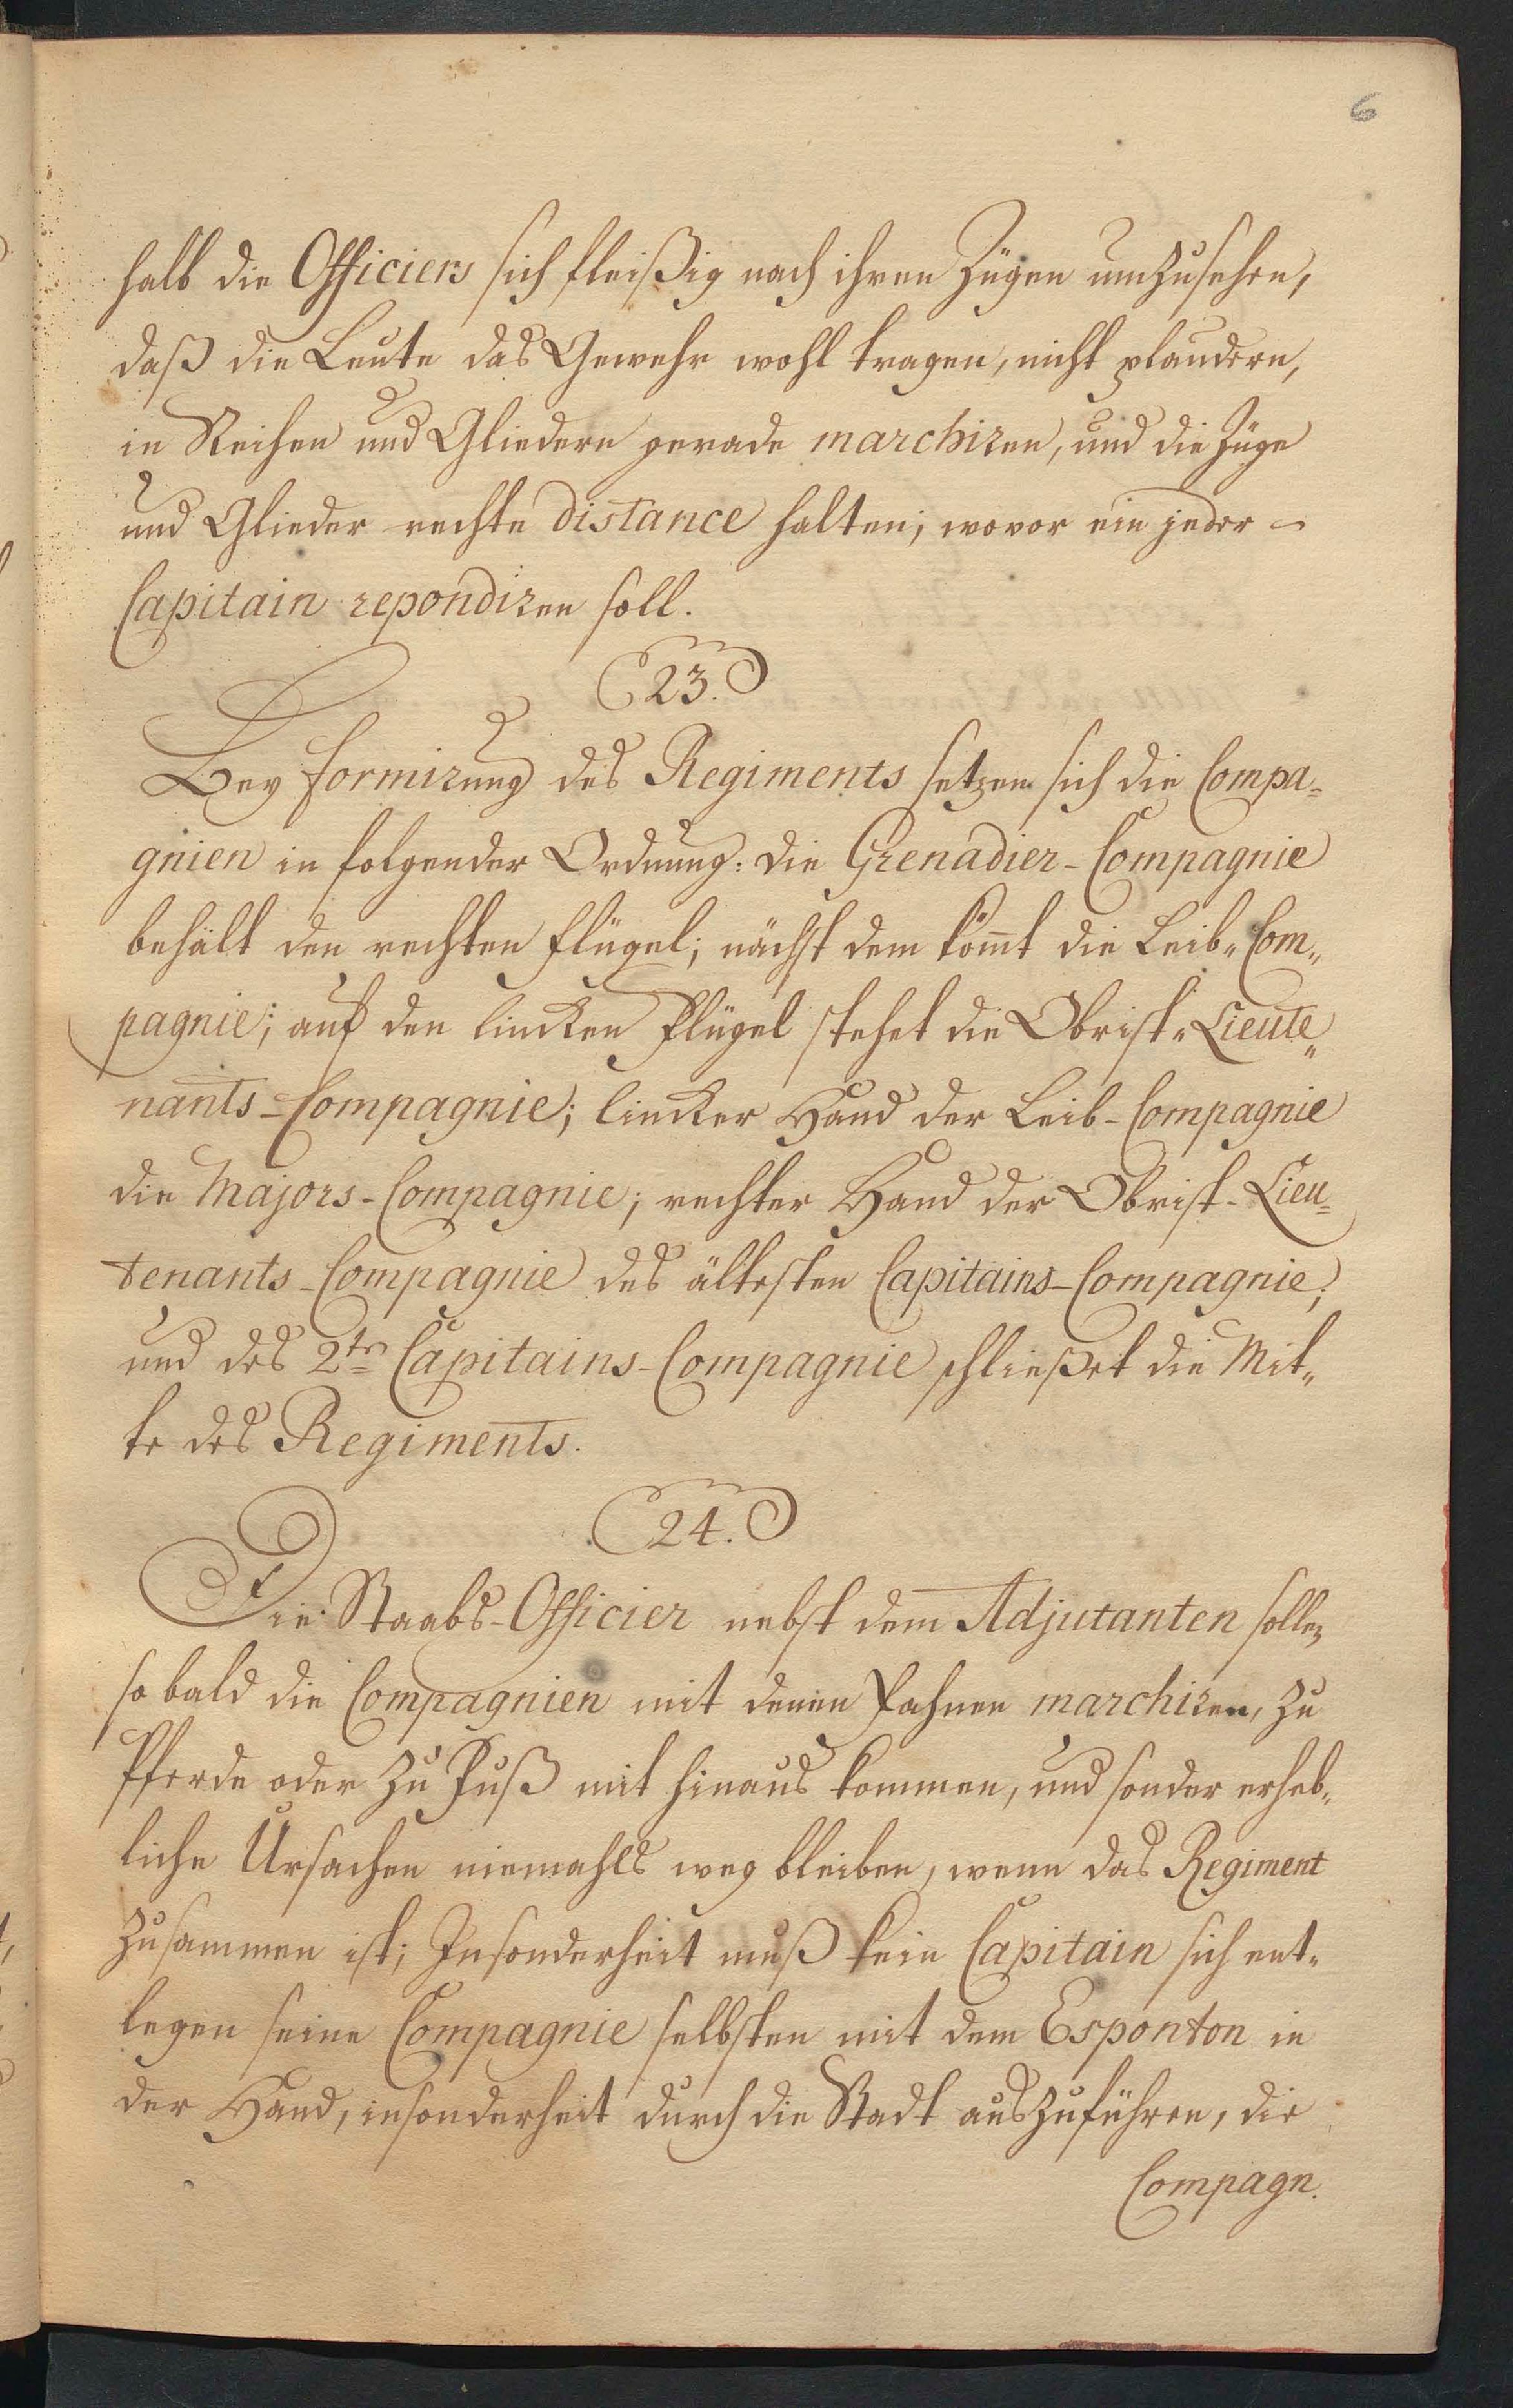 6
halb die Officiers sich fleißig nach ihren Zügen umzusehen,
daß die Leute das Gewehr wohl tragen, nicht plaudern,
in Reihen und Gliedern gerade marchiren, und die Züge
und Glieder rechte distance halten; wovor ein jeder
Capitain repondiren soll.
23.
Bey formirung des Regiments setzen sich die Compa-
gnien in folgender Ordnung: die Grenadier-Compagnie
behält den rechten Flügel; nächst dem kömt die Leib-Com-
pagnie; auf den lincken Flügel stehet die Obrist-Lieute-
nants-Compagnie; lincker Hand der Leib-Compagnie
die Majors-Compagnie; rechter Hand der Obrist-Lieu-
tenants-Compagnie des ältesten Capitains-Compagnie;
und des 2ten Capitains-Compagnie schließet die Mit-
te des Regiments.
24.
Die Staabs-Officier nebst dem Adjutanten sollen
so bald die Compagnien mit denen Fahnen marchiren, zu
Pferde oder zu Fuß mit hinaus kommen, und sonder erheb-
liche Ursachen niemahls weg bleiben, wenn das Regiment
zusammen ist; Insonderheit muß kein Capitain sich ent-
legen seine Compagnie selbsten mit dem Esponton in
der Hand, insonderheit durch die Stadt auszuführen, die
Compagn.